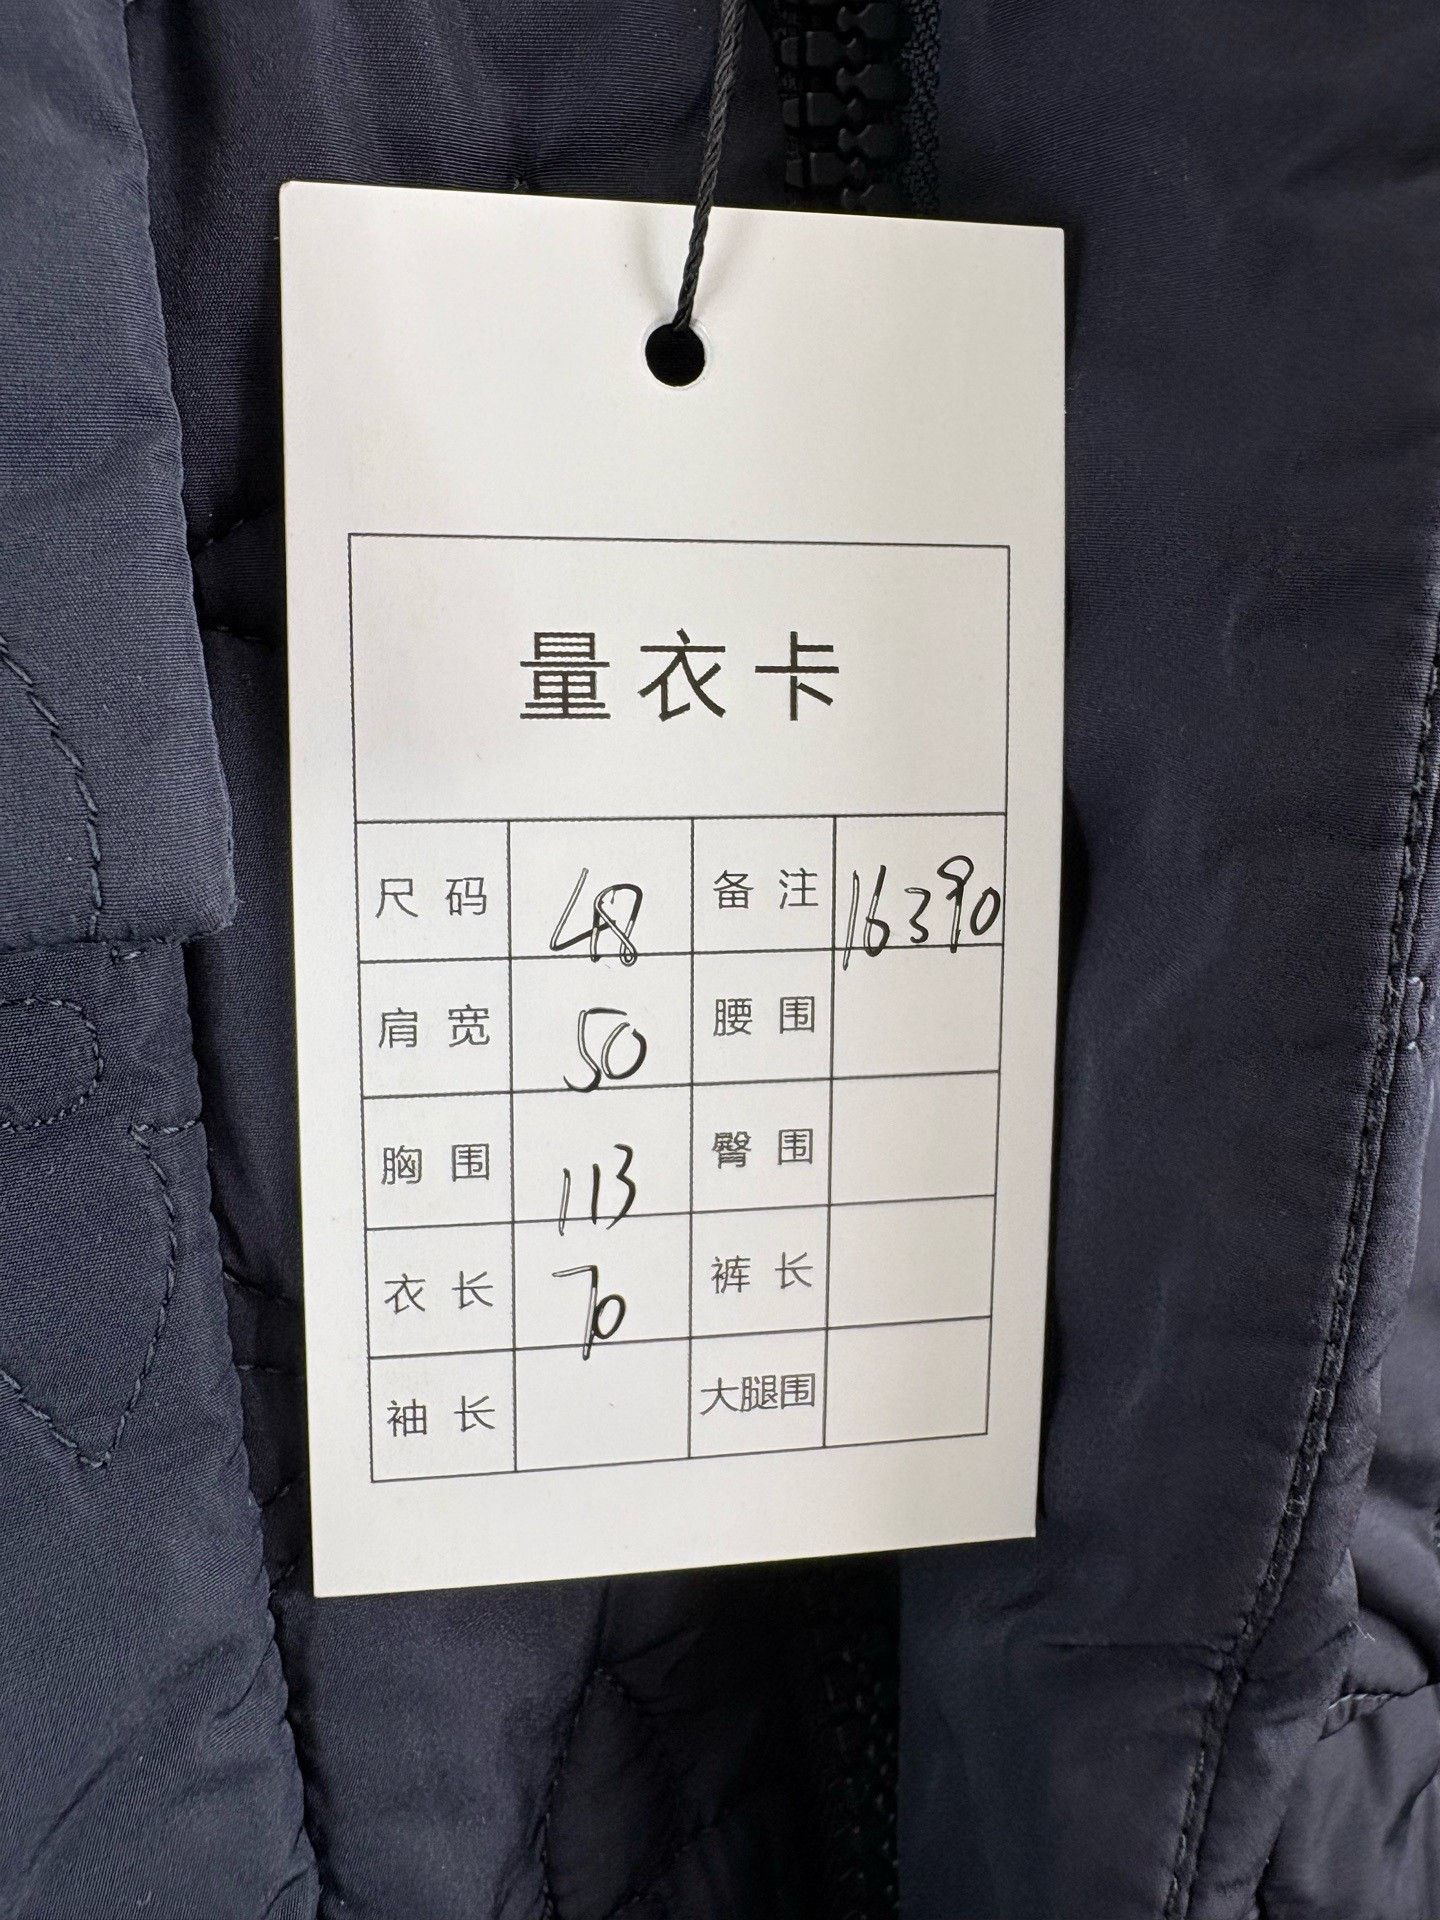 量衣卡
尺码 48 备注 16390
肩宽 50 腰围
胸围 113 臀围
衣长 70 裤长
袖长 大腿围